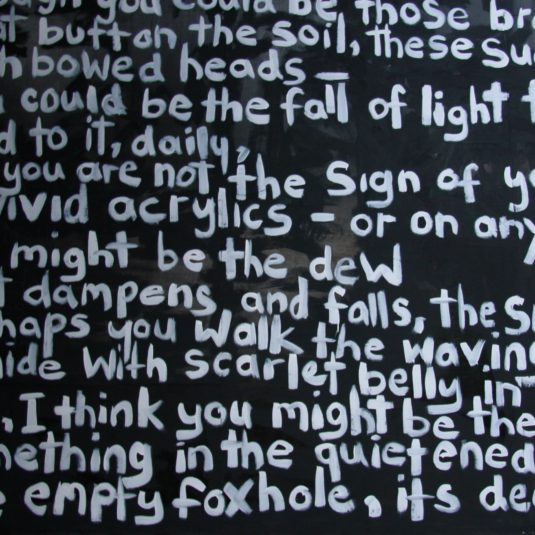 you could be those
butt on the soil, these
bowed heads –
could be the fall of light
to it, daily,
you are not the sign of
vivid acrylics – or on any
might be the dew
dampens and falls, the
you walk the
with scarlet belly in
, I think you might be the
in the quietened
empty foxhole, its